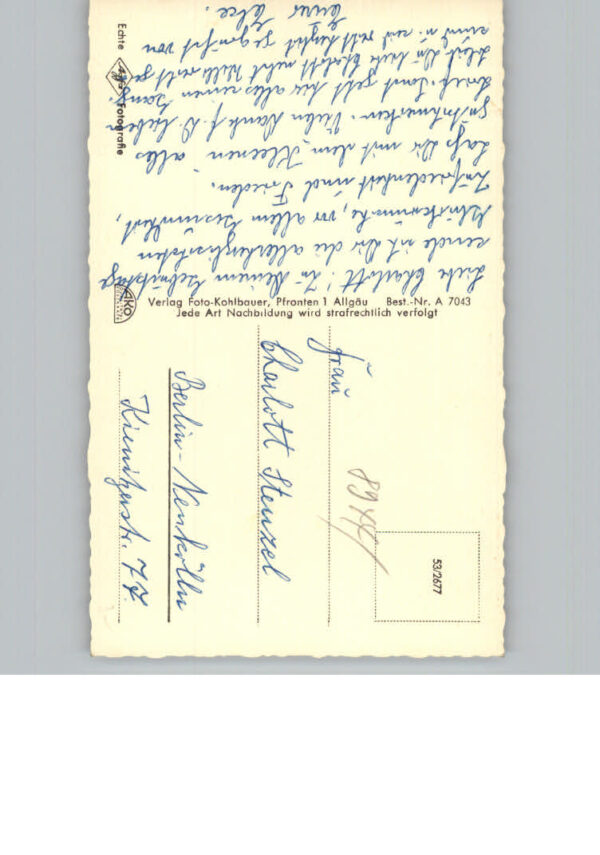 Liebe Charlott! Zu Deinem Geburtstage
sende ich Dir die allerherzlichsten
Glückwünsche, vor allem Gesundheit,
Zufriedenheit und Frieden.
Lass Dir mit dem Kleenen alles
gut schmecken. Vielen Dank f. D. lieben
Brief. Sonst geht hier alles seinen Gang.
liebe Charlott nebst
und r und seid herzlich gegrüßt von
Eurer Else.
Echte Agfa Fotografie
AKO
Verlag Foto-Kohlbauer, Pfronten 1 Allgäu Best.-Nr. A 7043
Jede Art Nachbildung wird strafrechtlich verfolgt
Frau
Charlott Stenzel
Berlin-Neukölln
Kienitzerstr. 77.
53/2677